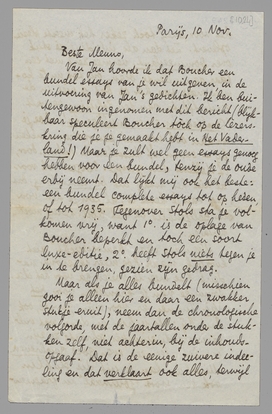 Parijs, 10 Nov.
Beste Menno,
Van Jan hoorde ik dat Boucher een
bundel essays van je wil uitgeven in de
uitvoering van Jan's gedichten. Ik ben bui-
tengewoon ingenomen met dit bericht! (Blijk-
baar speculeert Boucher tòch op de lezers-
kring die je je gemaakt hebt in Het Vader-
land!) Maar je zult wel geen essays genoeg
hebben voor een bundel, tenzij je de oude
erbij neemt. Dat lijkt mij ook het beste:
een bundel complete essays tot op heden
of tot 1935. Tegenover Stols sta je vol-
komen vrij, want 1°. is de oplage van
Boucher beperkt en toch een soort
luxe-editie, 2°. heeft Stols niets tegen je
in te brengen, gezien zijn gedrag.
Maar als je alles bundelt (misschien
gooi je alleen hier en daar een zwakker
stukje eruit), neem dan de chronologische
volgorde, met de jaartallen onder de stuk-
ken zelf, niet achterin, bij de inhouds-
opgaaf. Dat is de eenige zuivere indee-
ling en dat verklaart ook alles, terwijl